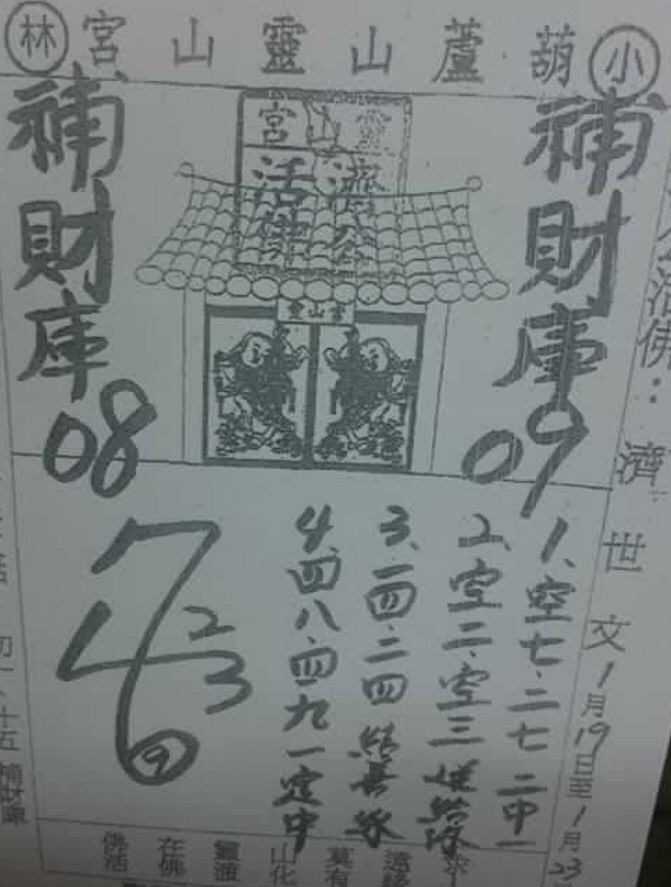 小葫蘆山靈山宮林
補財庫
09
補財庫
08
靈山宮
濟公
活佛
靈山宮
公活佛：
濟世文1月19日至1月23
1、空七、二七 二中一
2、空二、空三
3、一四、二四 結善緣
4、四八、四九 一定中
7
4
6
9
2
3
初一、十五 補財庫
莫有
山化
靈雅
在佛
佛活